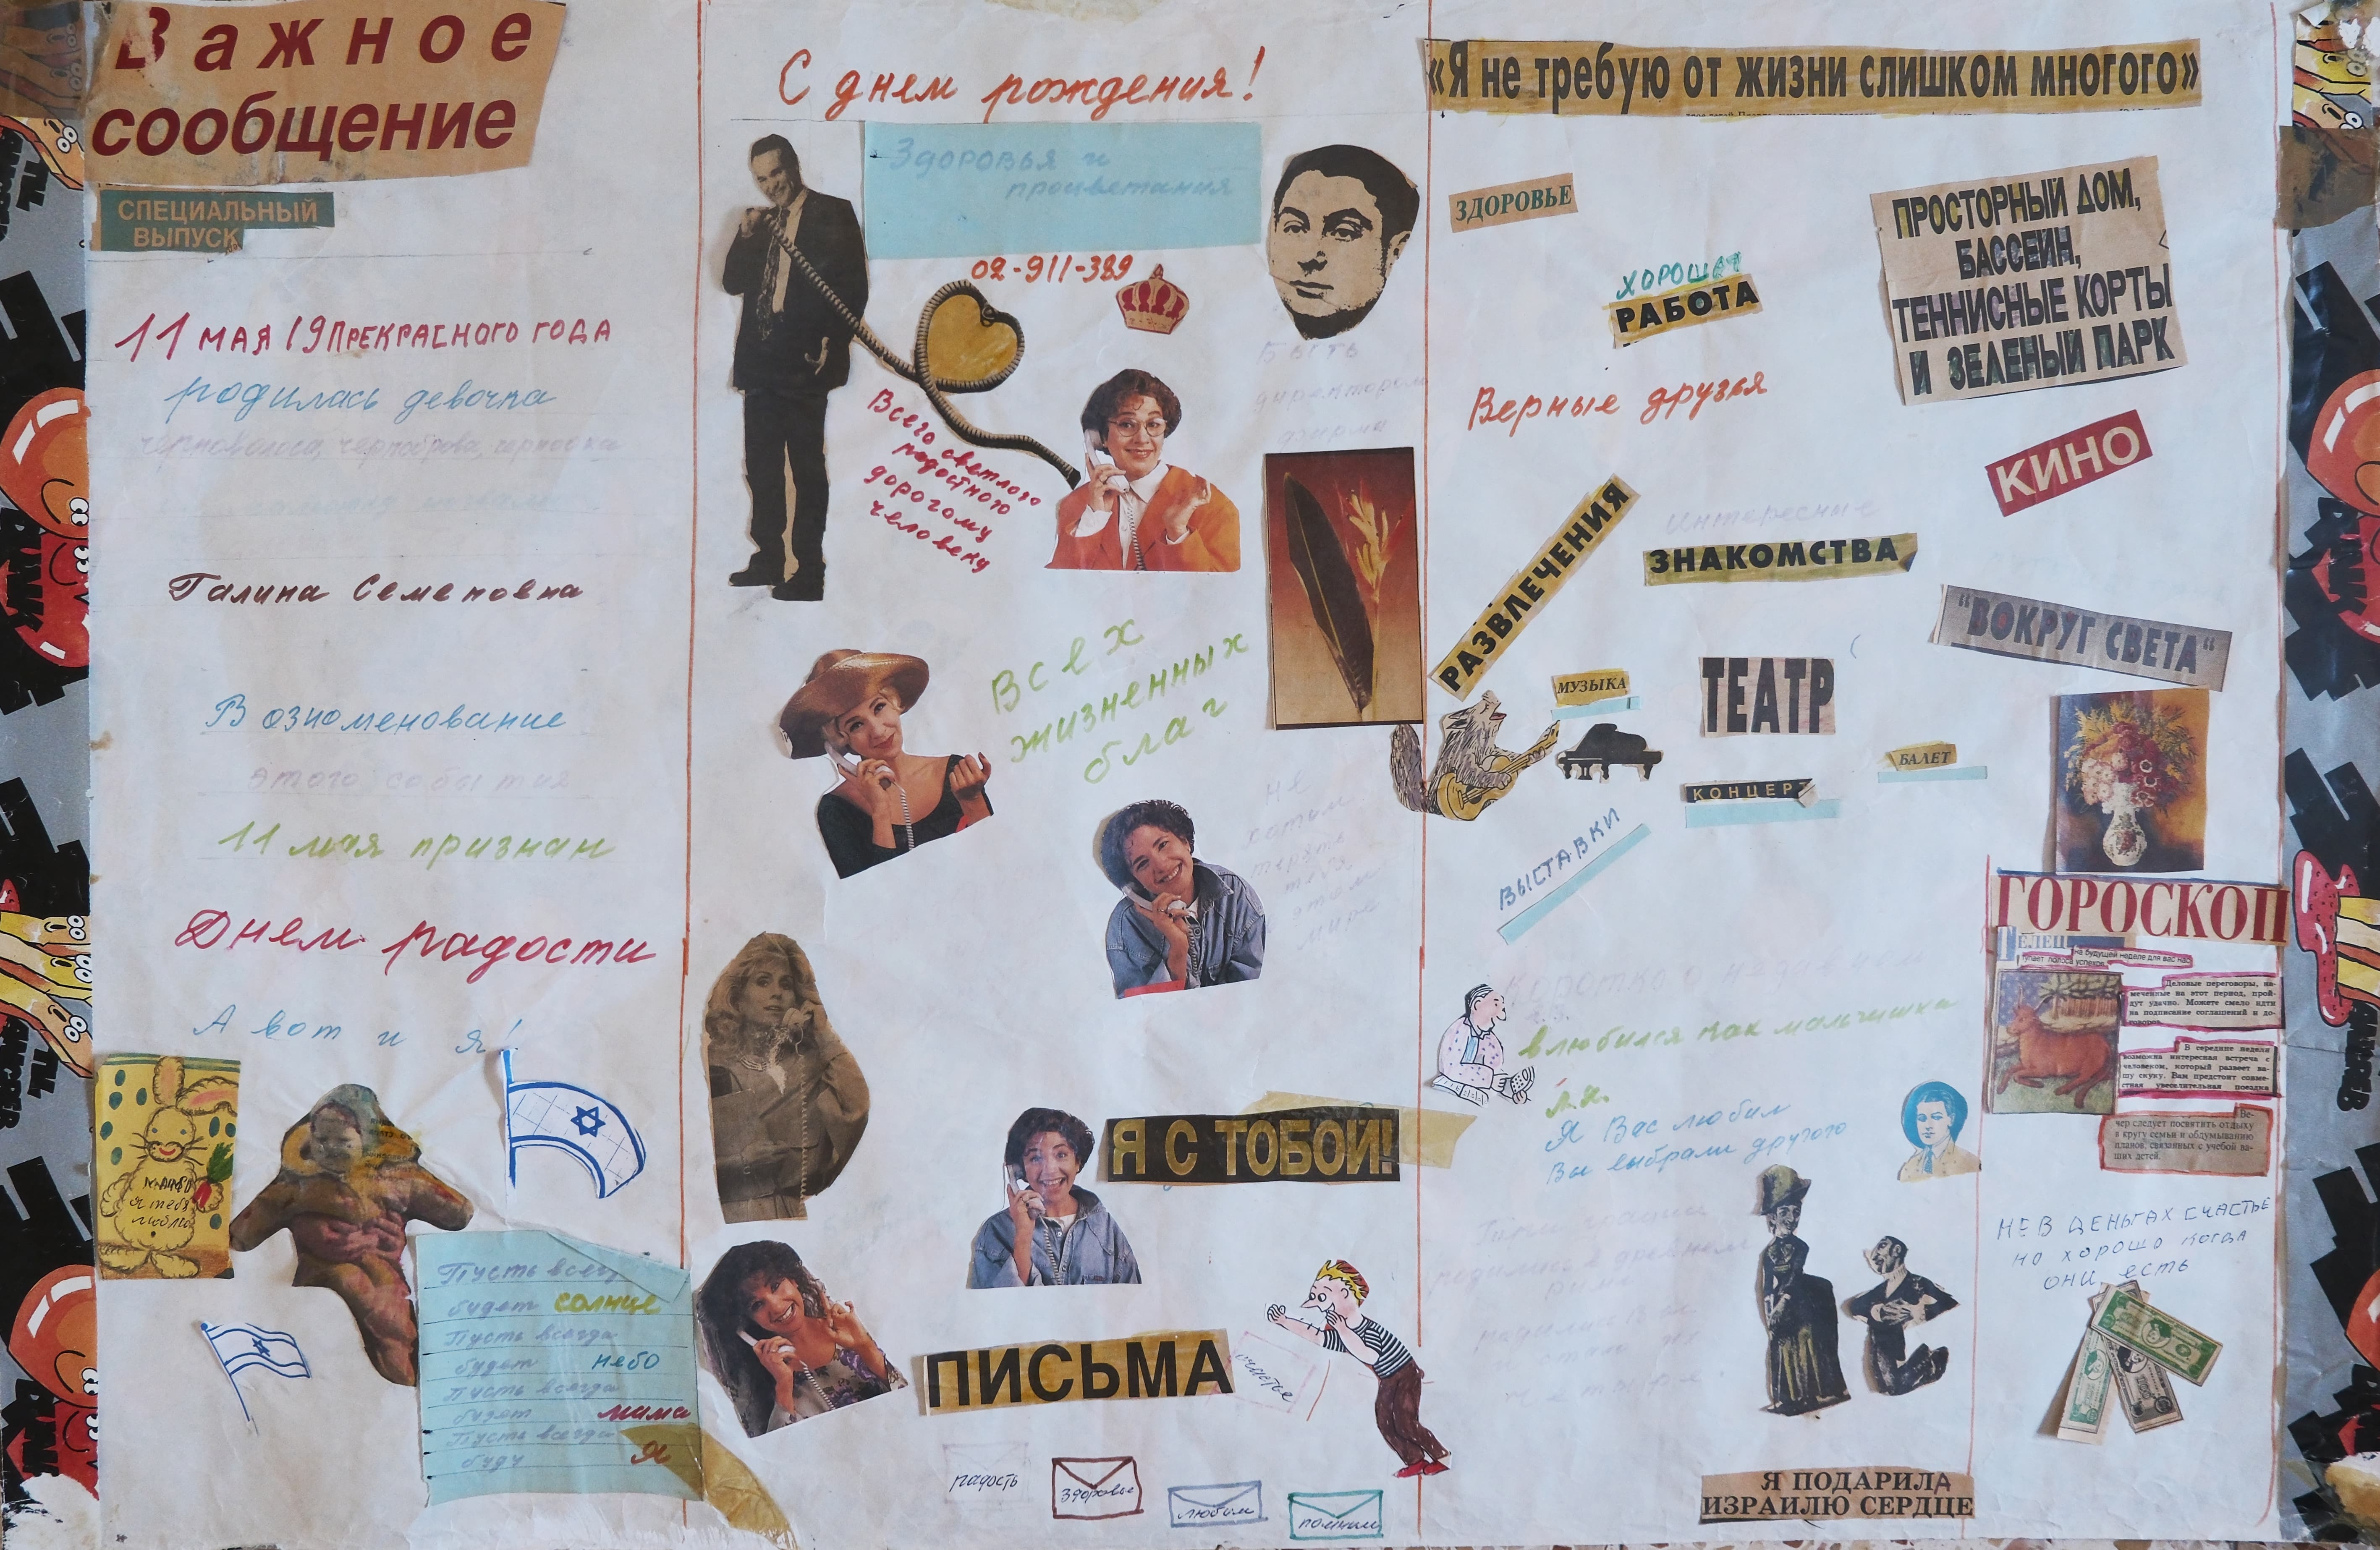 Важное
сообщение
СПЕЦИАЛЬНЫЙ
ВЫПУСК
11 МАЯ 19 ПРЕКРАСНОГО ГОДА
родилась девочка
черноволоса, черноброва,
Галина Семеновна
В ознаменование
этого события
11 мая признан
Днем радости
А вот и я!
я тебя
люблю
Пусть всегда
будет солнце
Пусть всегда
будет небо
Пусть всегда
будет мама
Пусть всегда
буду Я
С днем рождения!
Здоровья и
процветания
02-911-389
Всего светлого
радостного
дорогому
человеку
Быть
директором
фирмы
Всех
жизненных
благ
Не
хотим
терять
тебя
в этом
мире
Я С ТОБОЙ!
ПИСЬМА
счастье
радость
здоровье
любим
помним
«Я не требую от жизни слишком многого»
ЗДОРОВЬЕ
ХОРОШАЯ
РАБОТА
ПРОСТОРНЫЙ ДОМ,
БАССЕЙН,
ТЕННИСНЫЕ КОРТЫ
И ЗЕЛЕНЫЙ ПАРК
Верные друзья
КИНО
РАЗВЛЕЧЕНИЯ
Интересные
ЗНАКОМСТВА
"ВОКРУГ СВЕТА"
МУЗЫКА
ТЕАТР
БАЛЕТ
КОНЦЕРТ
ВЫСТАВКИ
влюбился как мальчишка
Я Вас любил
Вы выбрали другого
родились в древнем
Риме
Я ПОДАРИЛА
ИЗРАИЛЮ СЕРДЦЕ
ГОРОСКОП
ТЕЛЕЦ
на будущей неделе для вас нас-
тупает полоса успехов.
Деловые переговоры, на-
меченные на этот период, прой-
дут удачно. Можете смело идти
на подписание соглашений и до-
говоров.
В середине недели
возможна интересная встреча с
человеком, который развеет ва-
шу скуку. Вам предстоит совме-
стная увеселительная поездка
Ве-
чер следует посвятить отдыху
в кругу семьи и обдумыванию
планов, связанных с учебой ва-
ших детей.
НЕ В ДЕНЬГАХ СЧАСТЬЕ
НО ХОРОШО КОГДА
ОНИ ЕСТЬ